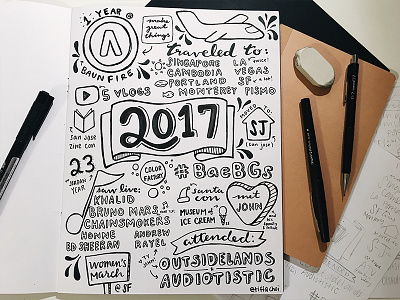 1 YEAR @
BAUNFIRE
make
great
things
traveled to:
SINGAPORE LA (twice!)
CAMBODIA VEGAS
PORTLAND SF
MONTEREY PISMO
5 VLOGS
san jose
zine con
2017
MOVED TO:
SJ
(san jose)
23
JORDAN
YEAR
COLOR
FACTORY
#BaeBGs
saw live:
KHALID
BRUNO MARS
CHAINSMOKERS
HONNE
ED SHEERAN
ANDREW
RAYEL
santa
con
MUSEUM OF
ICE CREAM
met
JOHN
attended:
OUTSIDELANDS
AUDIOTISTIC
women's
march
@SF